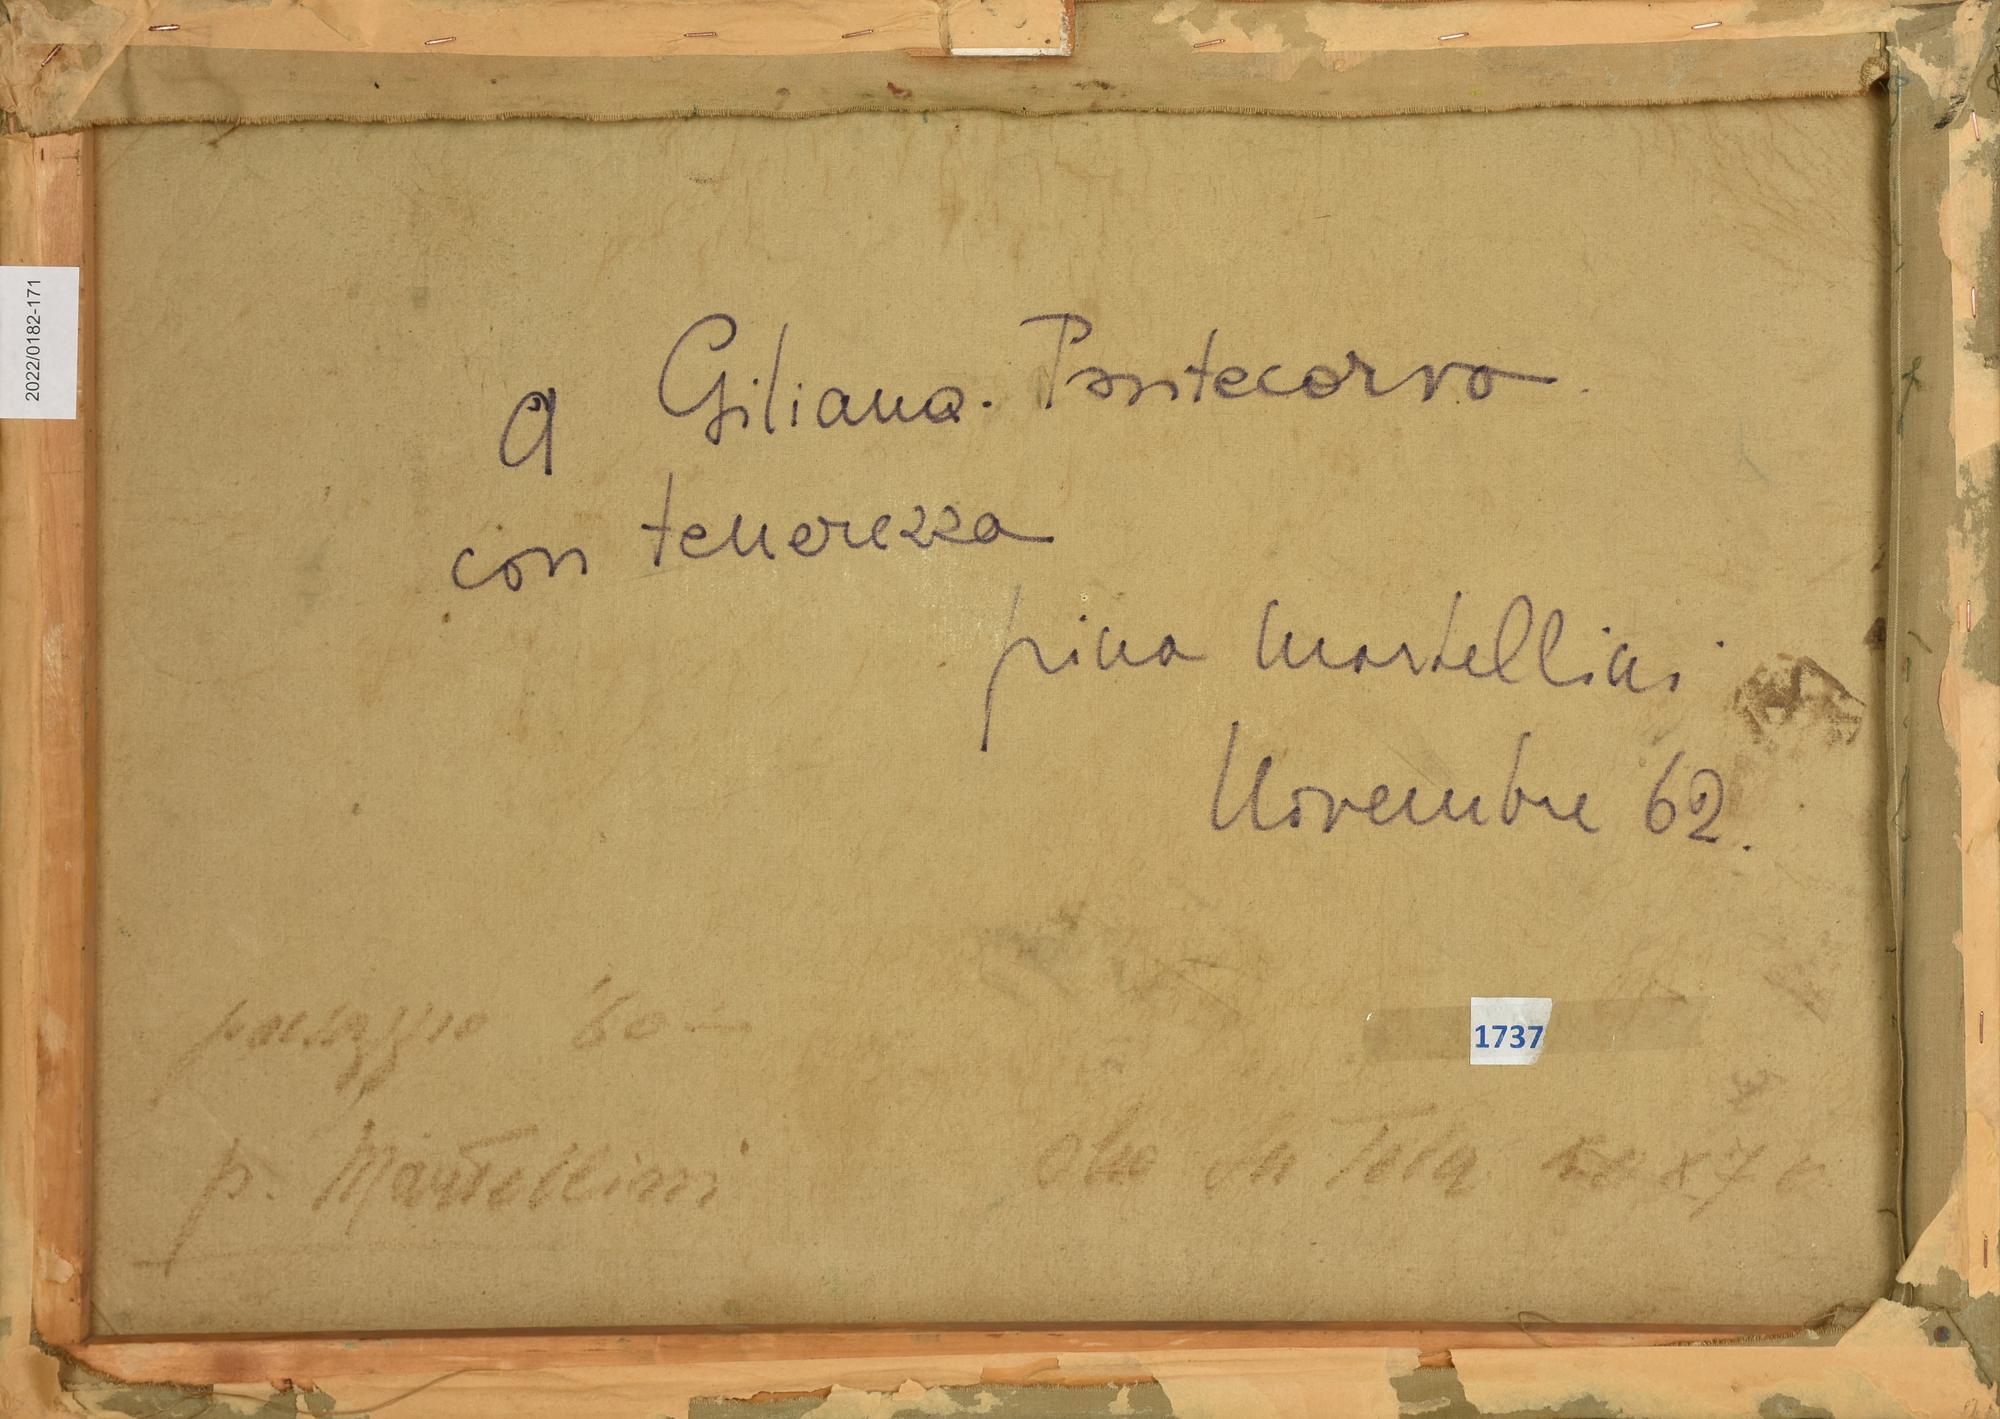 2022/0182-171
A Giliana. Pontecorvo.
con tenerezza
pina martellini
Novembre 62.
paesaggio '60-
1737
p. Martellini
olio su Tela 50 x 70